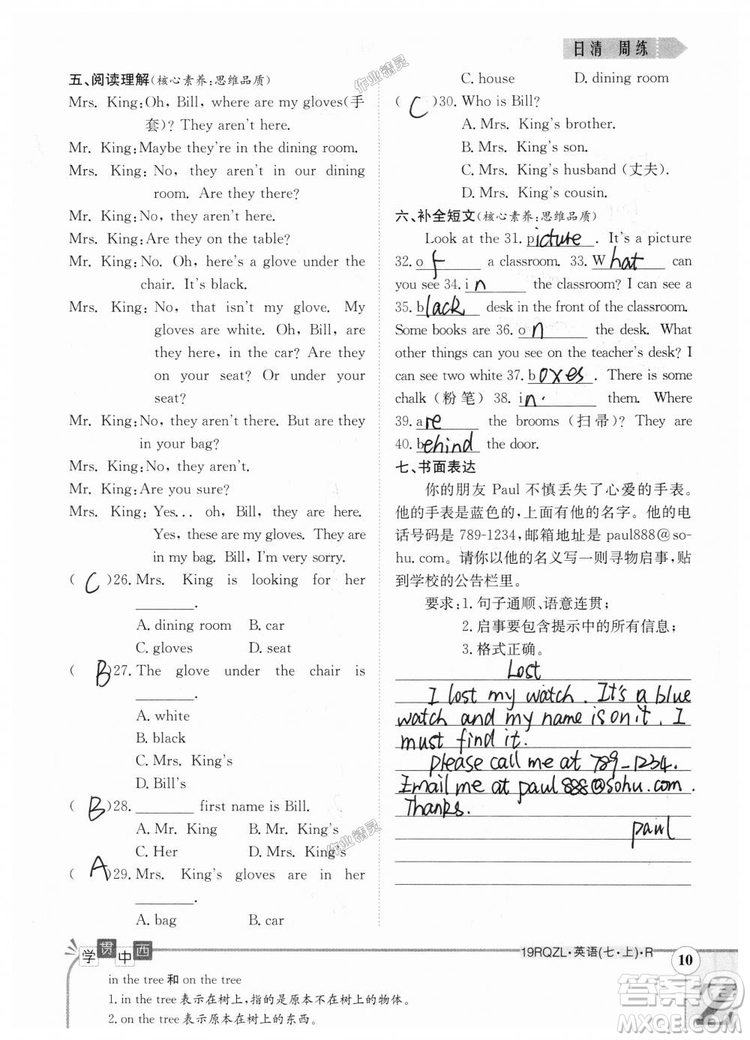 日清 周练
五、阅读理解(核心素养:思维品质)
Mrs. King:Oh, Bill, where are my gloves(手
套)? They aren't here.
Mr. King:Maybe they're in the dining room.
Mrs. King: No, they aren't in our dining
room. Are they on the sofa?
Mr. King:No, they aren't there.
Mrs. King:Are they on the table?
Mr. King:No, oh, here's a glove under the
chair. It's black.
Mrs. King: No, that isn't my glove. My
gloves are white. Oh, Bill, are
they in the car? Are they on
your seat? Or under your
seat?
Mr. King:No, they aren't there. But are they
in your bag?
Mrs. King:No, they aren't.
Mr. King:Are you sure?
Mrs. King:Yes... oh, Bill, they are here.
Yes, these are my gloves. They are
in my bag. Bill, I'm very sorry.
( C )26. Mrs. King is looking for her
______.
A. dining room B. car
C. gloves D. seat
( B )27. The glove under the chair is
______.
A. white
B. black
C. Mrs. King's
D. Bill's
( B )28. ______ first name is Bill.
A. Mr. King B. Mr. King's
C. Her D. Mrs. King's
( A )29. Mrs. King's gloves are in her
______.
A. bag B. car
C. house D. dining room
( C )30. Who is Bill?
A. Mrs. King's brother.
B. Mrs. King's son.
C. Mrs. King's husband (丈夫).
D. Mrs. King's cousin.
六、补全短文(核心素养:思维品质)
Look at the 31. picture. It's a picture
32. of a classroom. 33. What can
you see 34. in the classroom? I can see a
35. black desk in the front of the classroom.
Some books are 36. on the desk. What
other things can you see on the teacher's desk? I
can see two white 37. boxes. There is some
chalk (粉笔) 38. in them. Where
39. are the brooms (扫帚)? They are
40. behind the door.
七、书面表达
你的朋友 Paul 不慎丢失了心爱的手表。
他的手表是蓝色的,上面有他的名字。他的电
话号码是 789-1234,邮箱地址是 paul888@so-
hu.com。请你以他的名义写一则寻物启事,贴
到学校的公告栏里。
要求:1. 句子通顺、语意连贯;
2. 启事要包含提示中的所有信息;
3. 格式正确。
Lost
I lost my watch. It's a blue
watch and my name is on it. I
must find it.
Please call me at 789-1234.
Email me at paul888@sohu.com.
Thanks.
paul
学贯中西
19RQZL·英语(七·上)·R
10
in the tree 和 on the tree
1. in the tree 表示在树上,指的是原本不在树上的物体。
2. on the tree 表示在树上,指的是原本树上的东西。
作业精灵
作业精灵